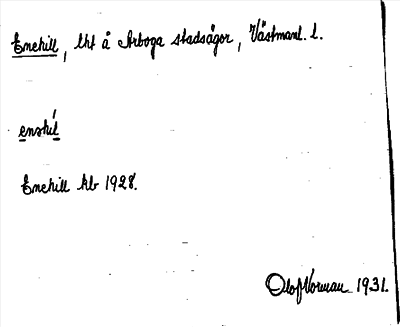 Enehill, lht å Arboga stadsägor, Västmanl. l.
enehil
Enehill kb 1928.
Olof Norman 1931.